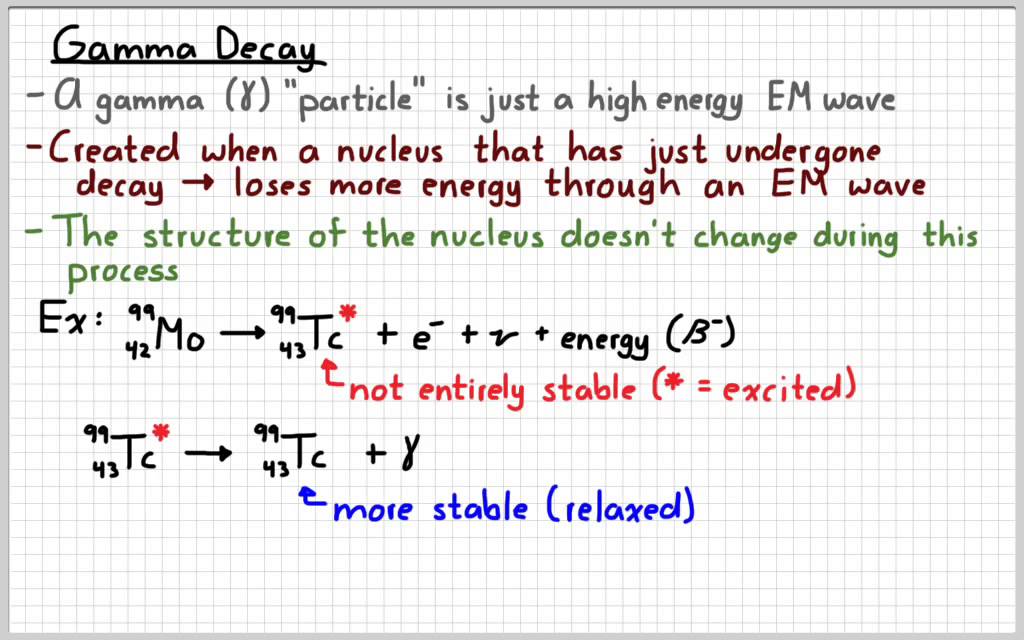 Gamma Decay
- A gamma (γ) "particle" is just a high energy EM wave
- Created when a nucleus that has just undergone
decay → loses more energy through an EM wave
- The structure of the nucleus doesn't change during this
process
Ex: ⁹⁹₄₂Mo → ⁹⁹₄₃Tc* + e⁻ + ν + energy (β⁻)
not entirely stable (* = excited)
⁹⁹₄₃Tc* → ⁹⁹₄₃Tc + γ
more stable (relaxed)